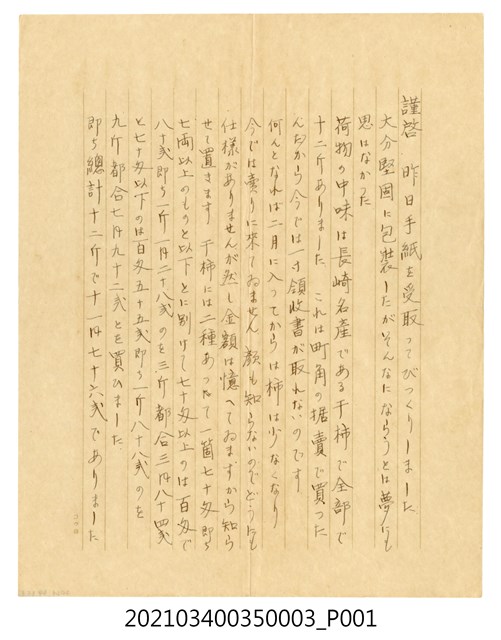 謹啓 昨日手紙を受取ってびっくりしました
大分堅固に包装したがそんなにならうとは夢にも
思はなかった
荷物の中味は長崎名産である干柿で全部で
十二斤ありました これは町角の据賣で買った
んだから今では一寸領收書が取れないのです
何んとなれば二月に入ってからは柿は少なくなり
今では賣りに来てゐません 顔も知らないのでどうにも
仕様がありませんが然し金額は憶へてゐますから知ら
せて置きます 干柿には二種あって一箇七十匁即ち
七両以上のものと以下とに別けて七十匁以上のは百匁で
八十弐即ち一斤一円二十八弐のを三斤都合三円八十四弐
と七十匁以下のは百匁五十五弐即ち一斤八十八弐のを
九斤都合七円九十二弐とを買ひました
即ち總計十二斤で十一円七十六弐でありました
202103400350003_P001